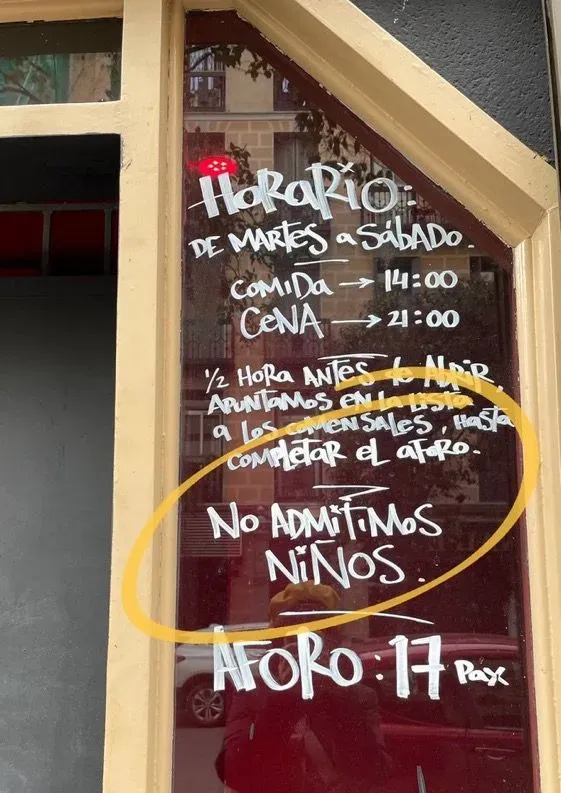 HORARIO:
DE MARTES a SÁBADO.
COMIDa → 14:00
CeNA → 21:00
1/2 HORA ANTES de ABRIR,
APUNTAMOS EN La LISTa
a LOS COMENSALES, HaSTa
COMPLETAR eL aFORO.
NO ADMITIMOS
NIÑOS.
AFORO: 17 Pax